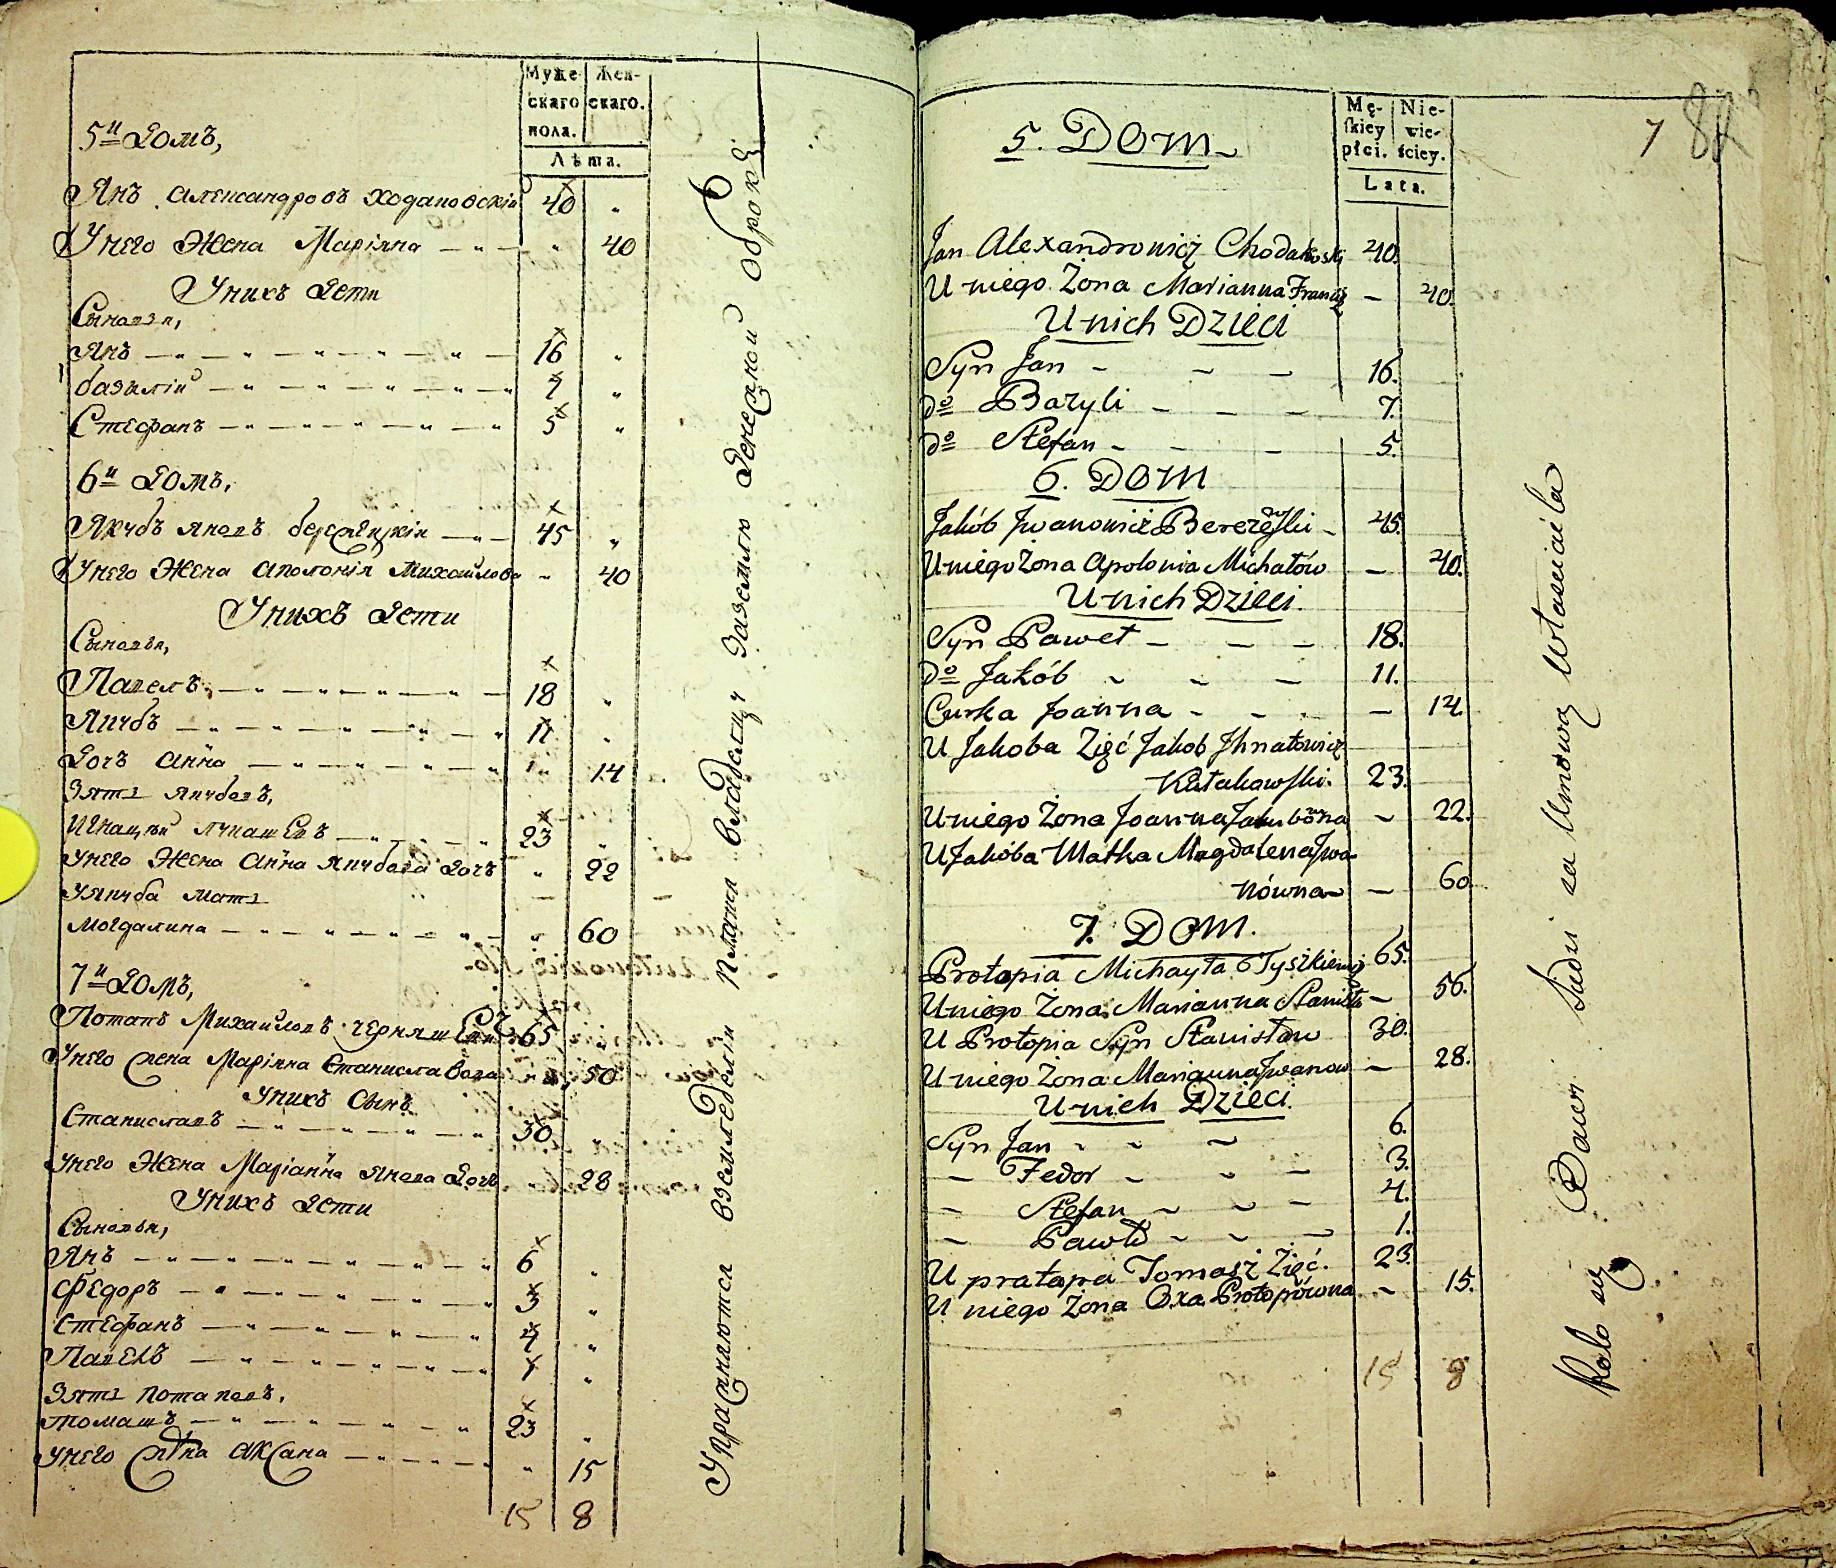 Муже-
скаго
пола.
Жен-
скаго.
Лѣта.
5й Домъ,
Янъ Александровъ Ходановскій 40 „
У него Жена Маріяна — „ — „ 40
У нихъ Дети
Сыновья,
Янъ — „ — „ — „ — „ — 16 „
базылій — „ — „ — „ — „ 7 „
Стефанъ — „ — „ — „ — „ 5 „
6й Домъ,
Якубъ яновъ — „ — 45 „
У него Жена аполонія Михайлова „ 40
У нихъ Дети
Сыновья,
Павелъ, — „ — „ — „ — 18 „
Якубъ — „ — „ — „ — „ 11 „
Дочь Анна — „ — „ — „ „ 14
Зять якубовъ,
Игнацый — „ — „ 23 „
У него Жена Анна якубова Дочь „ 22
У якуба мать
Могдалина — „ — „ — „ — „ „ 60
7й Домъ,
Потапъ Михайловъ 65
У него Жена Маріяна Станиславова „ 50
У нихъ Сынъ
Станиславъ — „ — „ — „ 30 „
У него Жена Маріанна янова Дочь „ 28
У нихъ Дети
Сыновья,
Янъ — „ — „ — „ — „ 6 „
Федоръ — „ — „ — „ — „ 3 „
Стефанъ — „ — „ — „ — „ 4 „
Павелъ — „ — „ — „ — „ 1 „
Зять потаповъ,
томашъ — „ — „ — „ 23 „
У него Жена Аксана — „ — „ „ 15
15 8
Упражняются вземледелии Платя владельцу Заземлю Денежной Оброкъ
Mę-
skiey
płci.
Nie-
wie-
ściey.
Lata.
7
5. Dom
Jan Alexandrowicz Chodakoski 40.
U niego Żona Marianna Franc — 40.
U nich Dzieci
Syn Jan — — — 16.
do Bazyli — — — 7.
do Stefan — — — 5.
6. Dom
Jakób Jwanowicz 45.
U niego Żona Apolonia Michałów — 40.
U nich Dzieci.
Syn Paweł — — — 18.
do Jakób — — — 11.
Curka Joanna — — — — 14.
U Jakoba Zięć Jakob Jhnatowicz
23.
U niego Żona Joanna Jakubówna — 22.
U Jakóba Matka Magdalena Jwa-
nówna — 60.
7. Dom.
Protopia Michayła Tyszkiewicz 65.
U niego Żona Marianna Stanisł — 56.
U Protopia Syn Stanisław 30.
U niego Żona Marianna Jwanow — 28.
U nich Dzieci.
Syn Jan — — — 6.
— Fedor — — — 3.
— Stefan — — — 4.
— Paweł — — — 1.
U pratapa Tomasz Zięć. 23.
U niego Żona Oxa Protopówna — 15.
15 8